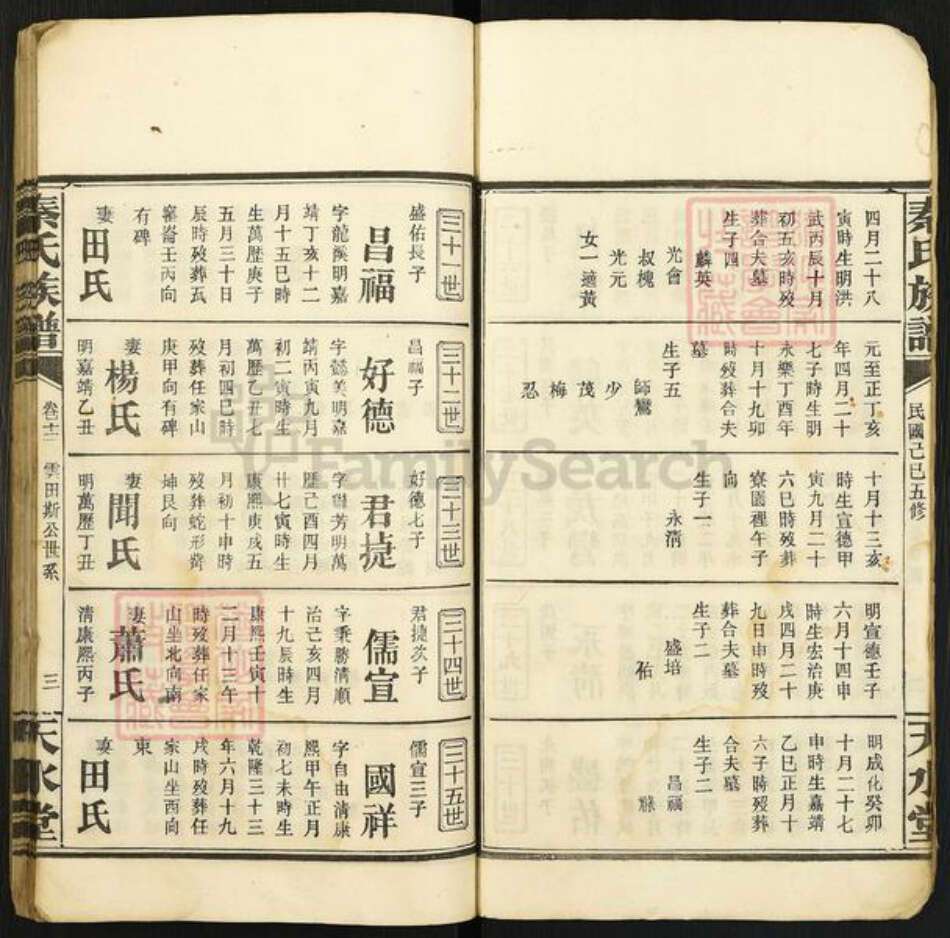 秦氏族譜
民國己巳五修
天水堂
四月二十八
寅時生明洪
武丙辰十月
初五亥時歿
葬合夫墓
生子四
麟英
光會
叔槐
光元
女一適黃
元至正丁亥
年四月二十
七子時生明
永樂丁酉年
十月十九卯
時歿葬合夫
墓
生子五
師鸞
少
茂
梅
忍
十月十三亥
時生宣德甲
寅九月二十
六巳時歿葬
寮園裡午子
向
生子一
永清
明宣德壬子
六月十四申
時生宏治庚
戌四月二十
九日申時歿
葬合夫墓
生子二
盛培
佑
明成化癸卯
十月二十七
申時生嘉靖
乙巳正月十
六子時歿葬
合夫墓
生子二
昌福
祿
三十一世
盛佑長子
昌福
字龍溪明嘉
靖丁亥十二
月十五巳時
生萬歷庚子
五月三十日
辰時歿葬瓦
窰崙壬丙向
有碑
妻田氏
三十二世
昌福子
好德
字懿美明嘉
靖丙寅九月
初二寅時生
萬歷乙丑七
月初四巳時
歿葬任家山
庚甲向有碑
妻楊氏
明嘉靖乙丑
三十三世
好德七子
君捷
字聯芳明萬
歷己酉四月
廿七寅時生
康熙庚戌五
月初十申時
歿葬蛇形嵛
坤艮向
妻聞氏
明萬歷丁丑
三十四世
君捷次子
儒宣
字秉勝清順
治己亥四月
十九辰時生
康熙壬寅十
二月十三午
時歿葬任家
山坐北向南
妻蕭氏
清康熙丙子
三十五世
儒宣三子
國祥
字自由清康
熙甲午正月
初七未時生
乾隆三十三
年六月十九
戌時歿葬任
家山坐西向
東
妻田氏
秦氏族譜
卷十二
雲田斯公世系
三
天水堂
FamilySearch